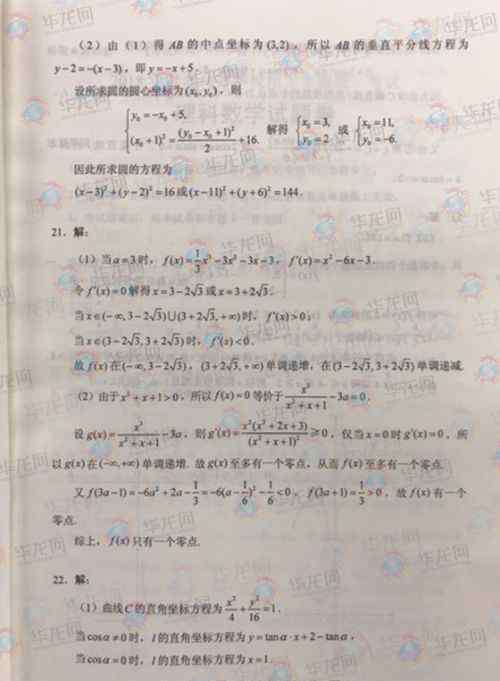 （2）由（1）得 AB 的中点坐标为 (3,2)，所以 AB 的垂直平分线方程为
y-2=-(x-3)，即 y=-x+5.
设所求圆的圆心坐标为 (x₀,y₀)，则
{y₀=-x₀+5, (x₀+1)²=(y₀-x₀+1)²/2+16. 解得 {x₀=3, y₀=2 或 {x₀=11, y₀=-6.
因此所求圆的方程为
(x-3)²+(y-2)²=16 或 (x-11)²+(y+6)²=144.
21. 解：
（1）当 a=3 时，f(x)=1/3x³-3x²-3x-3，f′(x)=x²-6x-3.
令 f′(x)=0 解得 x=3-2√3 或 x=3+2√3.
当 x∈(-∞,3-2√3)∪(3+2√3,+∞) 时，f′(x)>0；
当 x∈(3-2√3,3+2√3) 时，f′(x)<0.
故 f(x) 在 (-∞,3-2√3)，(3+2√3,+∞) 单调递增，在 (3-2√3,3+2√3) 单调递减.
（2）由于 x²+x+1>0，所以 f(x)=0 等价于 x³/(x²+x+1)-3a=0.
设 g(x)=x³/(x²+x+1)-3a，则 g′(x)=x²(x²+2x+3)/(x²+x+1)²≥0，仅当 x=0 时 g′(x)=0，所
以 g(x) 在 (-∞,+∞) 单调递增. 故 g(x) 至多有一个零点，从而 f(x) 至多有一个零点.
又 f(3a-1)=-6a²+2a-1/3=-6(a-1/6)²-1/6<0，f(3a+1)=1/3>0，故 f(x) 有一个
零点.
综上，f(x) 只有一个零点.
22. 解：
（1）曲线 C 的直角坐标方程为 x²/4+y²/16=1.
当 cosα≠0 时，l 的直角坐标方程为 y=tanα·x+2-tanα，
当 cosα=0 时，l 的直角坐标方程为 x=1.
华龙网